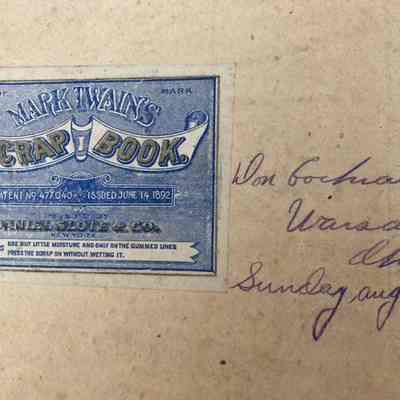 MARK
MARK TWAIN'S
SCRAP BOOK.
PATENT NO. 477,040. ISSUED JUNE 14 1892
DANIEL SLOTE & CO.
NEW YORK.
USE BUT LITTLE MOISTURE AND ONLY ON THE GUMMED LINES
PRESS THE SCRAP ON WITHOUT WETTING IT.
Don
Sunday, aug